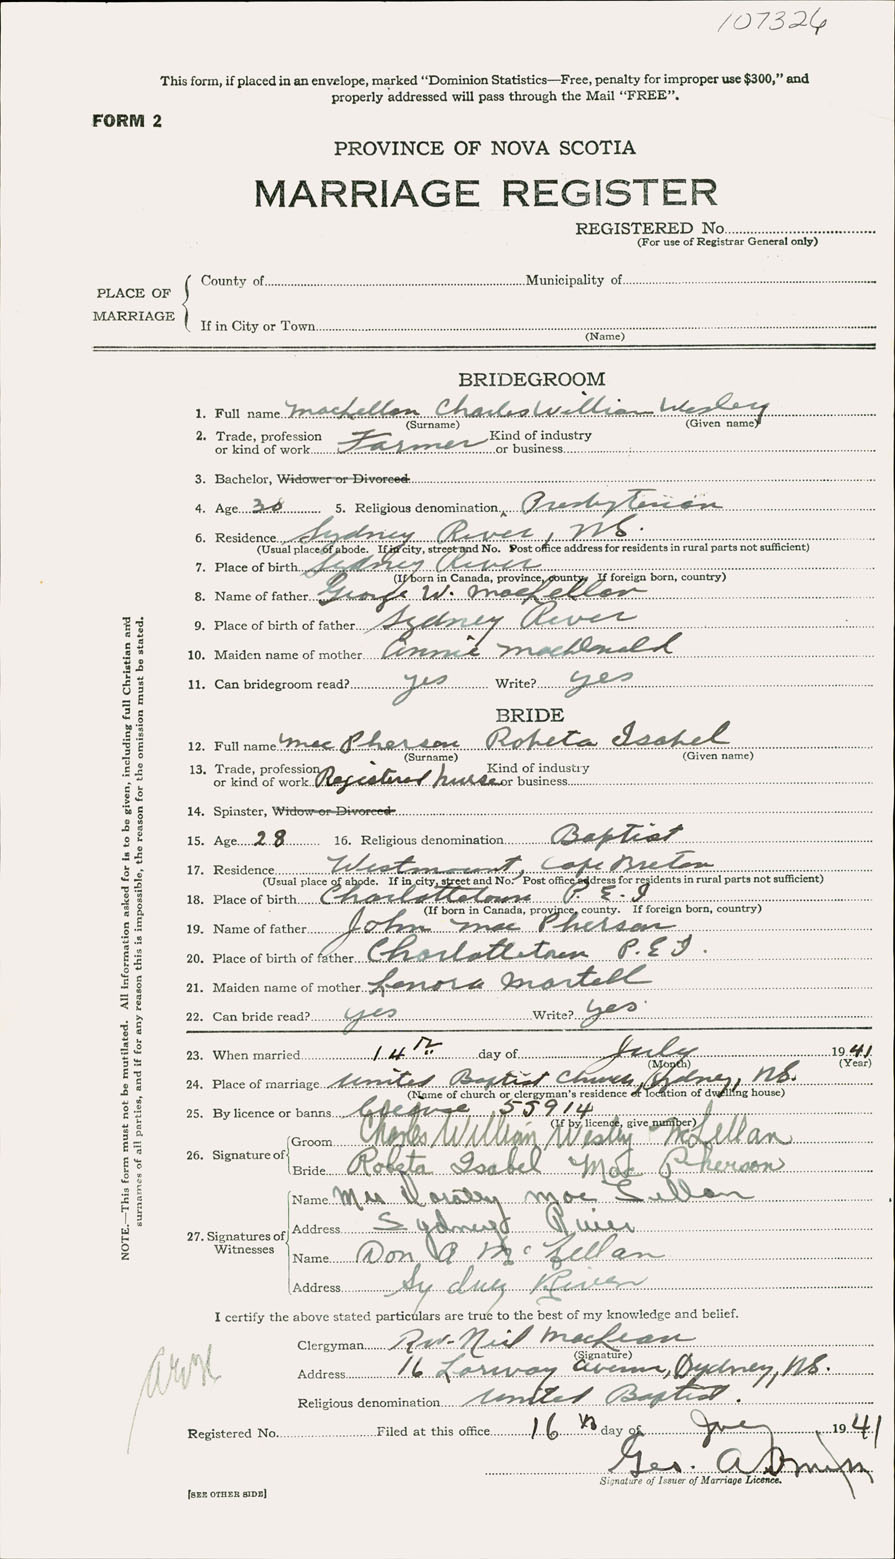 107326
This form, if placed in an envelope, marked “Dominion Statistics—Free, penalty for improper use $300,” and
properly addressed will pass through the Mail “FREE”.
FORM 2
PROVINCE OF NOVA SCOTIA
MARRIAGE REGISTER
REGISTERED No.
(For use of Registrar General only)
PLACE OF MARRIAGE
County of Municipality of
If in City or Town
(Name)
BRIDEGROOM
1. Full name MacLellan Charles William Wesley
(Surname) (Given name)
2. Trade, profession or kind of work Farmer Kind of industry or business
3. Bachelor, Widower or Divorced
4. Age 5. Religious denomination Presbyterian
6. Residence Sydney River, N.S.
(Usual place of abode. If in city, street and No. Post office address for residents in rural parts not sufficient)
7. Place of birth Sydney River
(If born in Canada, province, county. If foreign born, country)
8. Name of father George W. MacLellan
9. Place of birth of father Sydney River
10. Maiden name of mother Annie MacDonald
11. Can bridegroom read? yes Write? yes
BRIDE
12. Full name MacPherson Robeta Isabel
(Surname) (Given name)
13. Trade, profession or kind of work Registered Nurse Kind of industry or business
14. Spinster, Widow or Divorced
15. Age 28 16. Religious denomination Baptist
17. Residence Westmount, Cape Breton
(Usual place of abode. If in city, street and No. Post office address for residents in rural parts not sufficient)
18. Place of birth Charlottetown P.E.I
(If born in Canada, province, county. If foreign born, country)
19. Name of father John MacPherson
20. Place of birth of father Charlottetown P.E.I.
21. Maiden name of mother Lenora Martell
22. Can bride read? yes Write? yes
23. When married 14th day of July 1941
(Month) (Year)
24. Place of marriage United Baptist Church, Sydney, N.S.
(Name of church or clergyman's residence or location of dwelling house)
25. By licence or banns 55914
(If by licence, give number)
26. Signature of
Groom Charles William Wesley McLellan
Bride Robeta Isabel MacPherson
27. Signatures of Witnesses
Name Mrs MacLellan
Address Sydney River
Name Don A McLellan
Address Sydney River
I certify the above stated particulars are true to the best of my knowledge and belief.
Clergyman Rev. Neil MacLean
(Signature)
Address 16 Lorway Avenue, Sydney, N.S.
Religious denomination United Baptist.
Registered No. Filed at this office 16 day of July 1941
Geo. A
Signature of Issuer of Marriage Licence.
[SEE OTHER SIDE]
NOTE.—This form must not be mutilated. All information asked for is to be given, including full Christian and
surnames of all parties, and if for any reason this is impossible, the reason for the omission must be stated.